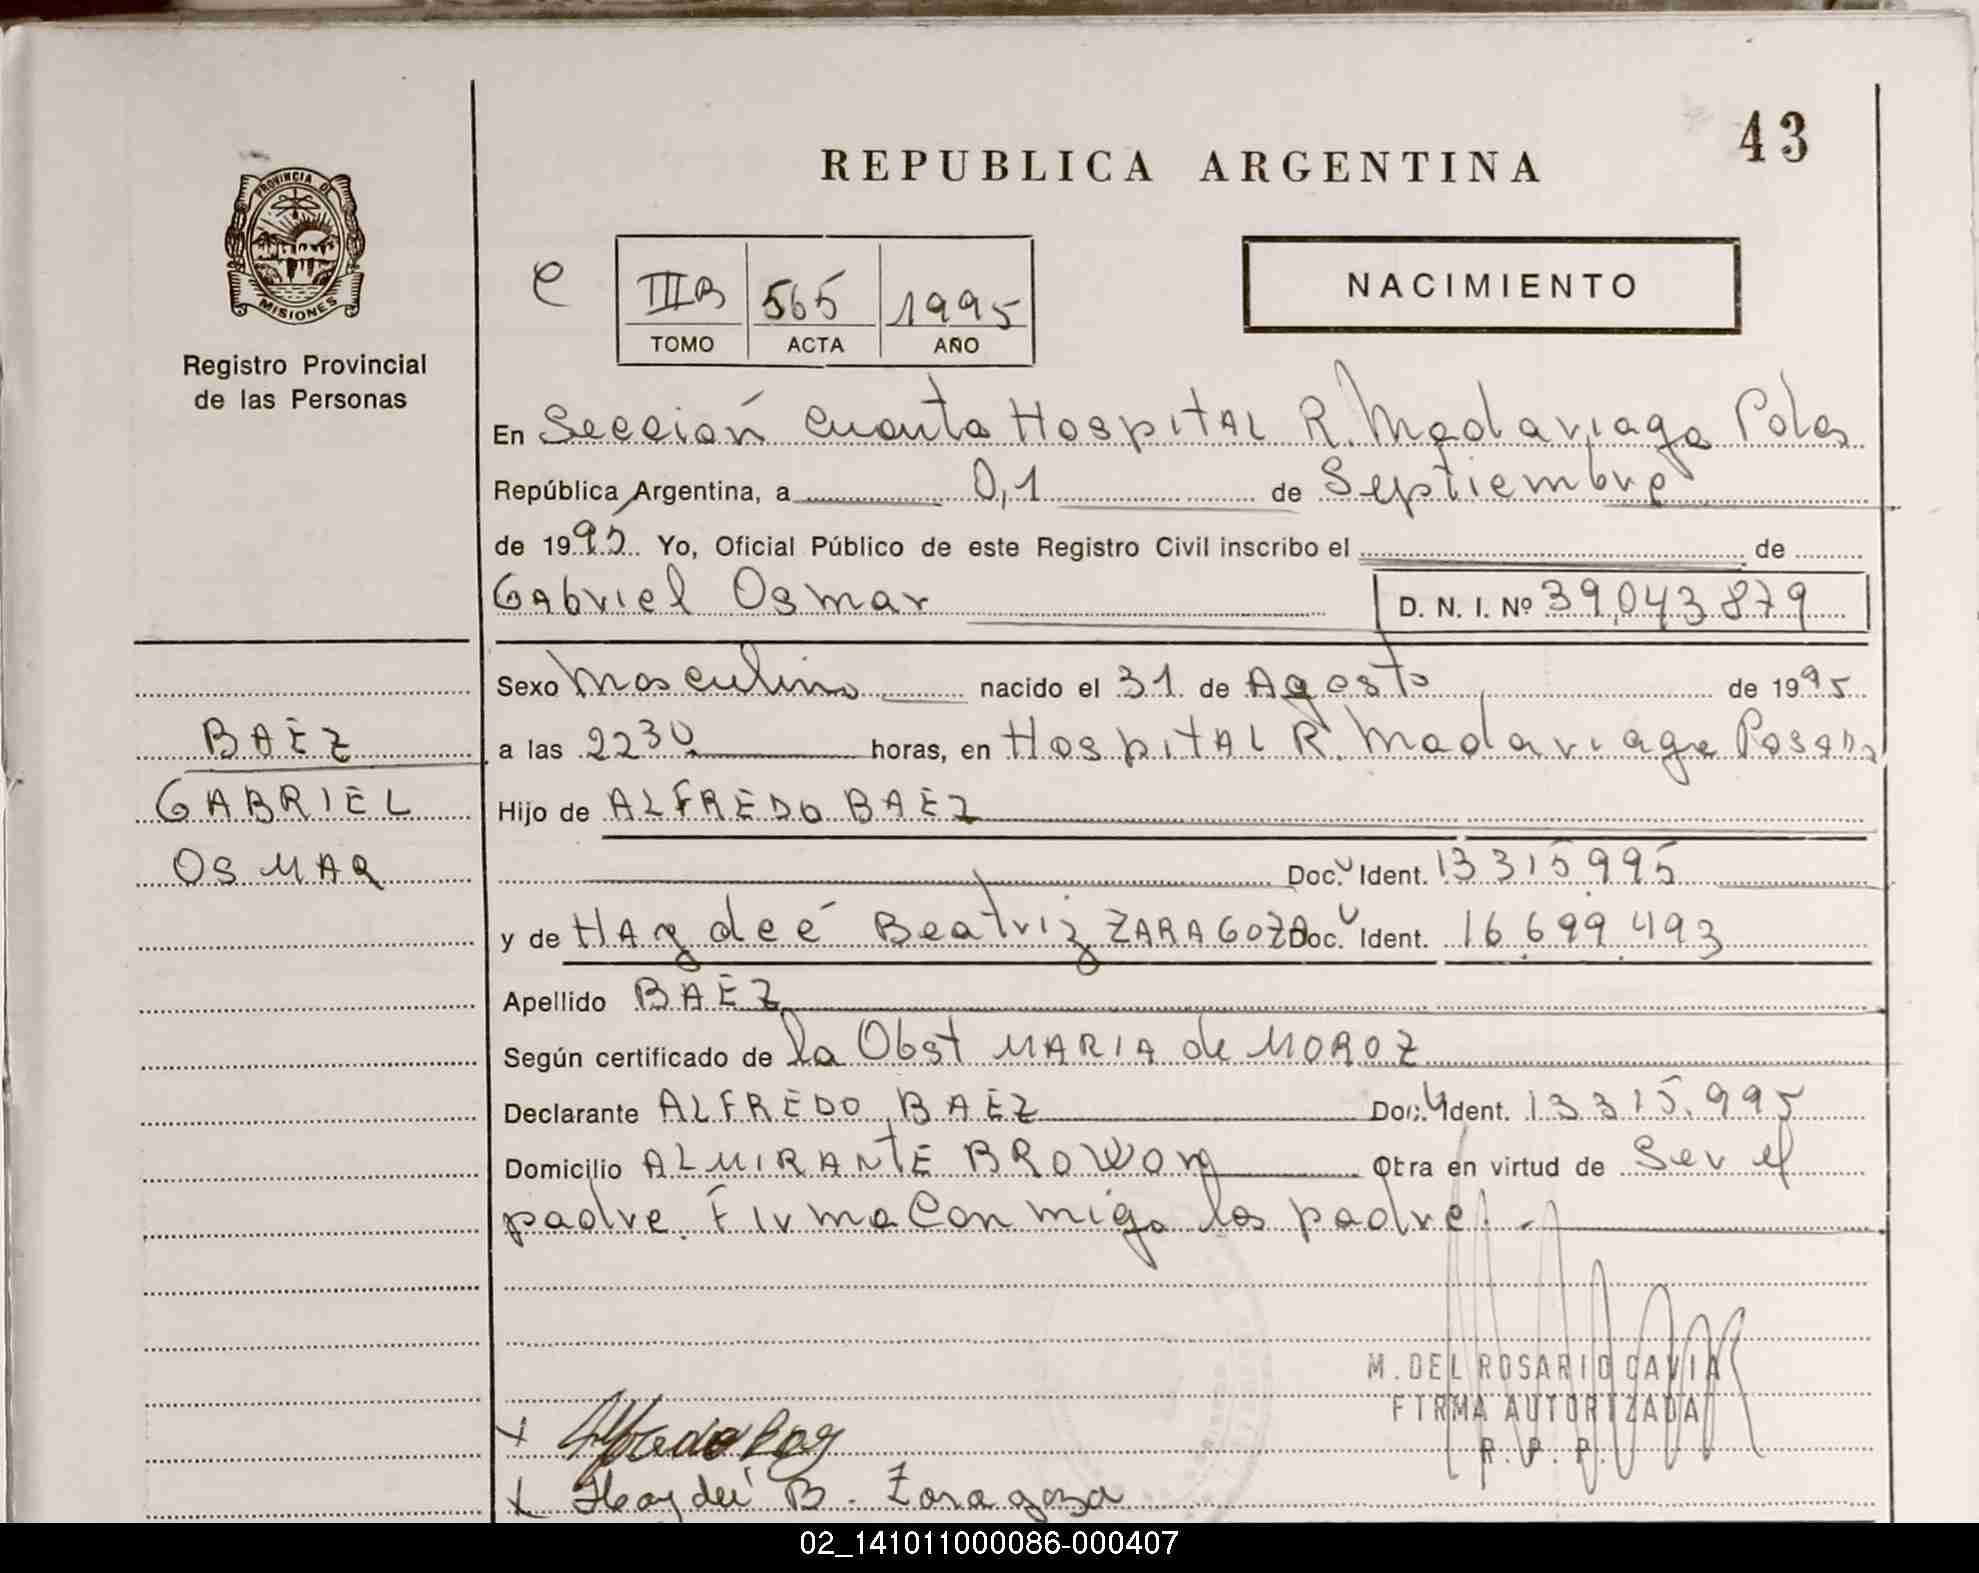 43
REPUBLICA ARGENTINA
PROVINCIA DE
MISIONES
Registro Provincial
de las Personas
e
III B 565 1995
TOMO ACTA AÑO
NACIMIENTO
En Sección Cuarta Hospital R. Madariaga Pdas
República Argentina, a 01 de Septiembre
de 1995 Yo, Oficial Público de este Registro Civil inscribo el de
Gabriel Osmar D. N. I. Nº 39.043.879
Sexo Masculino nacido el 31 de Agosto de 1995
BAEZ
a las 2230 horas, en Hospital R. Madariaga Posadas
GABRIEL
Hijo de ALFREDO BAEZ
OSMAR
Doc. Ident. 13315995
y de Haydeé Beatriz ZARAGOZA Doc. Ident. 16.699.493
Apellido BAEZ
Según certificado de la Obst MARIA de MOROZ
Declarante ALFREDO BAEZ Doc. Ident. 13315.995
Domicilio ALMIRANTE BROWON Obra en virtud de Ser el
padre. Firma Conmigo los padre.
M. DEL ROSARIO CAVIA
FIRMA AUTORIZADA
R. P. P.
Alfredo Baez
Haydeé B. Zaragoza
02_141011000086-000407